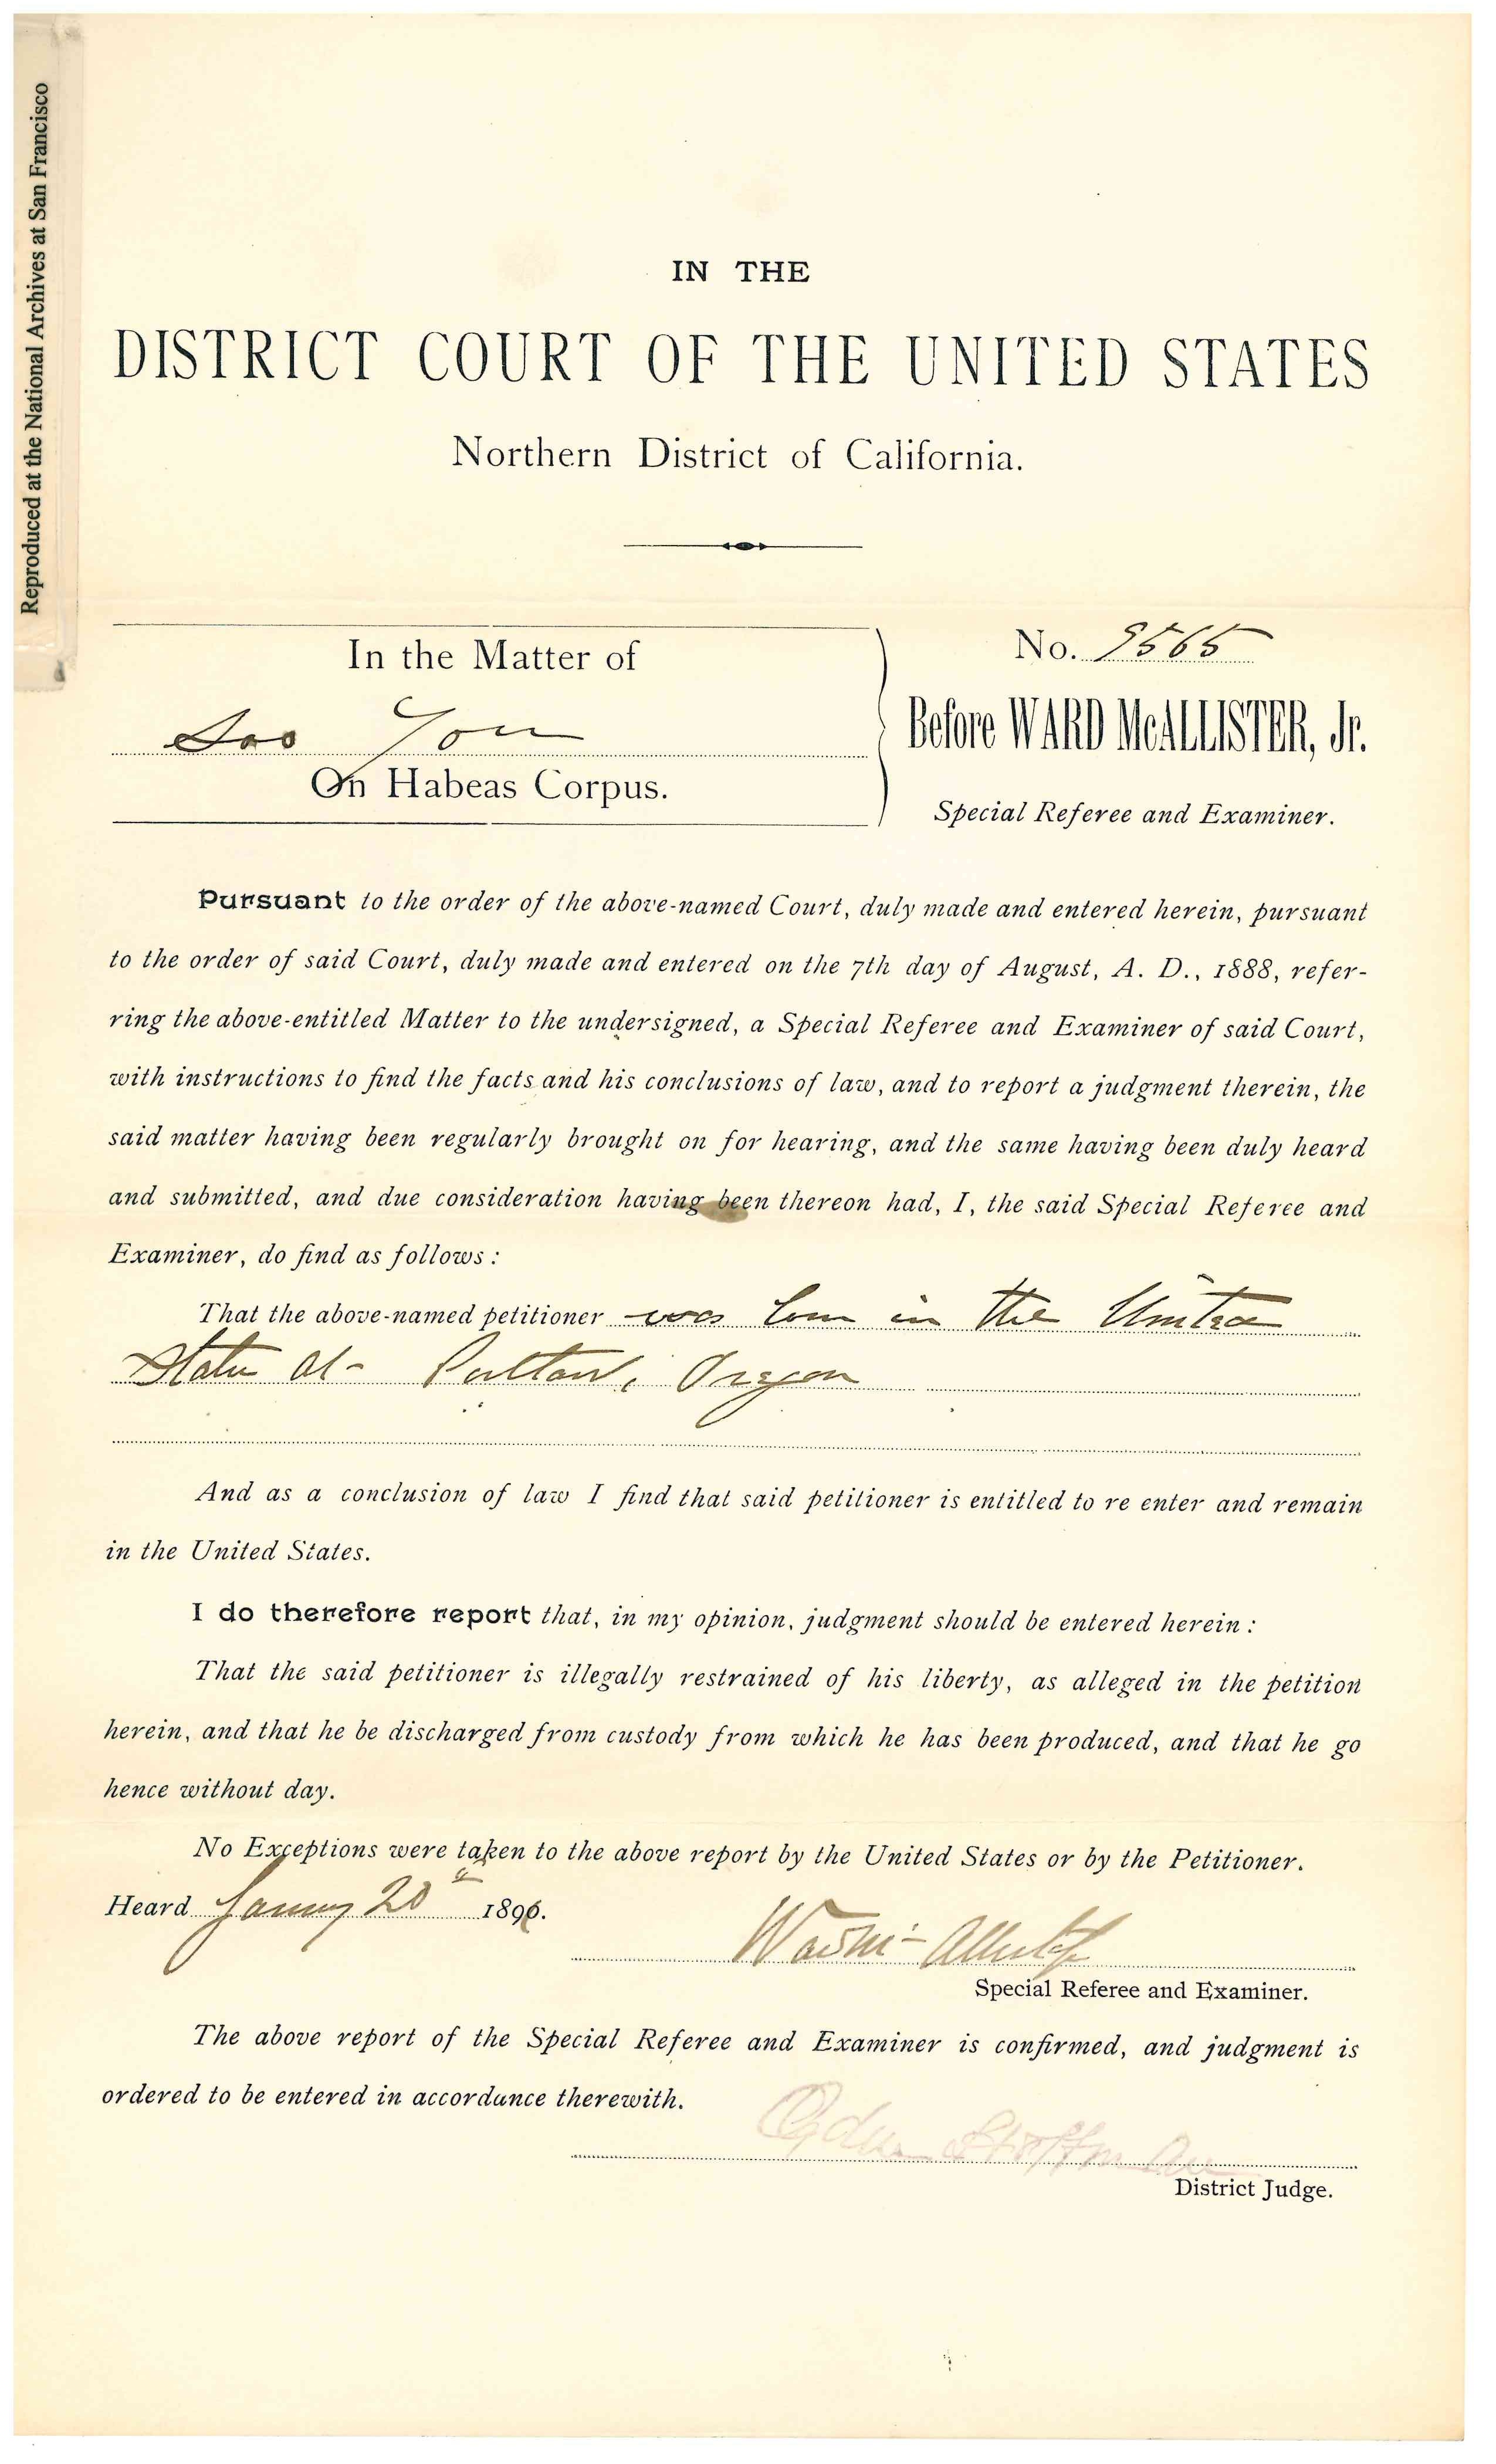 Reproduced at the National Archives at San Francisco
IN THE
DISTRICT COURT OF THE UNITED STATES
Northern District of California.
In the Matter of
Yon
On Habeas Corpus.
No. 9565
Before WARD McALLISTER, Jr.
Special Referee and Examiner.
Pursuant to the order of the above-named Court, duly made and entered herein, pursuant
to the order of said Court, duly made and entered on the 7th day of August, A. D., 1888, refer-
ring the above-entitled Matter to the undersigned, a Special Referee and Examiner of said Court,
with instructions to find the facts and his conclusions of law, and to report a judgment therein, the
said matter having been regularly brought on for hearing, and the same having been duly heard
and submitted, and due consideration having been thereon had, I, the said Special Referee and
Examiner, do find as follows :
That the above-named petitioner was born in the United
States at Portland, Oregon
And as a conclusion of law I find that said petitioner is entitled to re enter and remain
in the United States.
I do therefore report that, in my opinion, judgment should be entered herein :
That the said petitioner is illegally restrained of his liberty, as alleged in the petition
herein, and that he be discharged from custody from which he has been produced, and that he go
hence without day.
No Exceptions were taken to the above report by the United States or by the Petitioner.
Heard January 20th 1890.
Ward McAllister Jr
Special Referee and Examiner.
The above report of the Special Referee and Examiner is confirmed, and judgment is
ordered to be entered in accordance therewith.
Ogden Hoffman
District Judge.